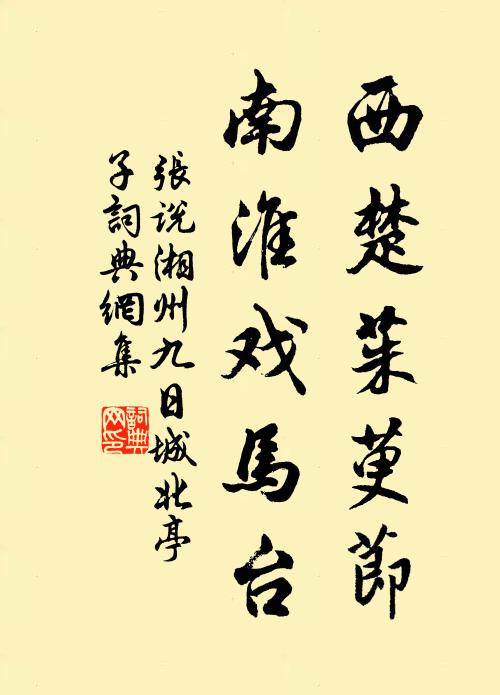 西楚茱萸節
南淮戏馬台
張说湘州九日城北亭
子詞典網集
詞典网印